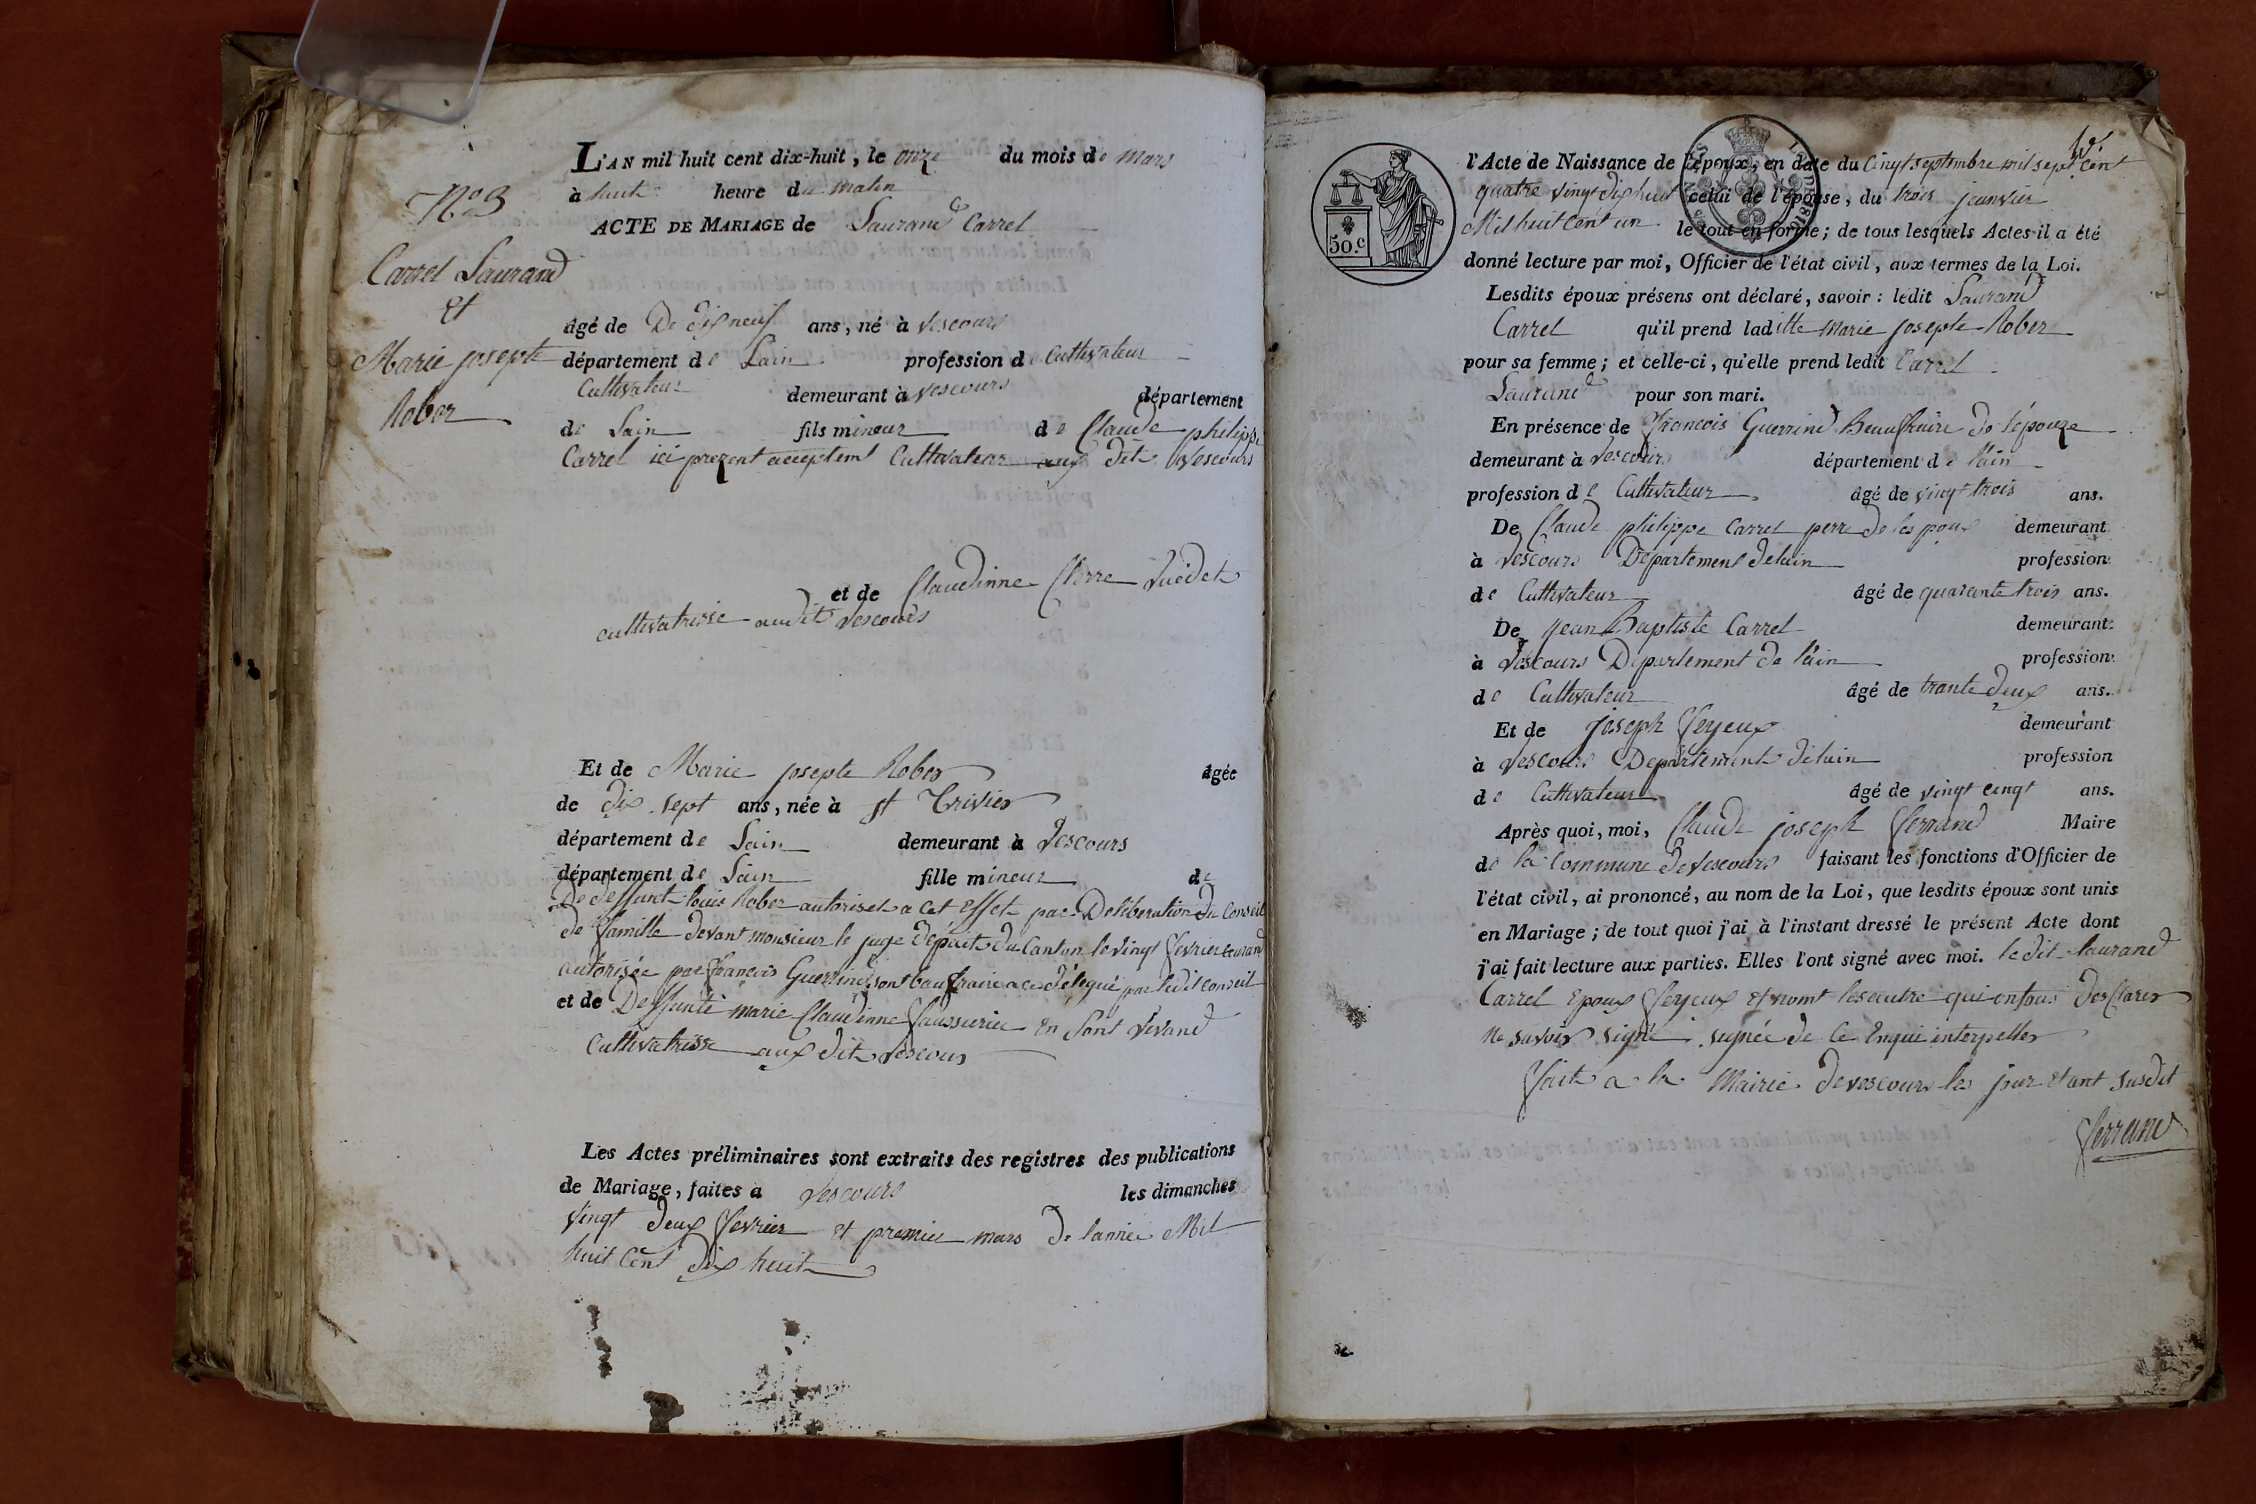 L'AN mil huit cent dix-huit, le onze du mois de mars
à huit heure du matin
ACTE DE MARIAGE de Laurand Carrel
N.o 3
Carrel Laurand
et
Marie josepte
Rober
âgé de De dix neuf ans, né à vescours
département de Lain profession de Cultivateur
Cultivateur demeurant à vescours département
de Lain fils mineur de Claude philippe
Carrel ici prezent acceptent Cultivateur aux dit vescours
et de Claudinne Clerre
cultivatrisse audit vescours
Et de Marie josepte Rober âgée
de dix sept ans, née à st Trivier
département de Lain demeurant à vescours
département de Lain fille mineur de
De deffunt louis Rober autoriset a cet effet par Deliberation du Conseil
de famille devant monsieur le juge depaix du Canton le vingt fevrier
autorisée par françois Guerrind son baufraire a ce délégué par ledit conseil
et de Deffunte marie Claudinne en Sont vivand
Cultivatrisse aux dit vescour
Les Actes préliminaires sont extraits des registres des publications
de Mariage, faites à vescours les dimanches
vingt deux fevrier et premier mars de lannée Mil
huit Cent dix huit
50.c
l'Acte de Naissance de l'époux, en date du Cinqt septembre mil sept Cent
quatre vingt dix huit celui de l'épouse, du trois jeanvier
Mil huit Cent un le tout en forme; de tous lesquels Actes il a été
donné lecture par moi, Officier de l'état civil, aux termes de la Loi.
Lesdits époux présens ont déclaré, savoir: ledit Laurand
Carrel qu'il prend laditte marie josepte Rober
pour sa femme; et celle-ci, qu'elle prend ledit Carrel
Laurand pour son mari.
En présence de francois Guerrind Beaufraire de lépouze
demeurant à vescours département de lain
profession de Cultivateur âgé de vingt trois ans.
De Claude philippe Carrel perre de les poux demeurant
à vescours Département delain profession
de Cultivateur âgé de quarante trois ans.
De jean Baptiste Carrel demeurant
à vescours Département de lain profession
de Cultivateur âgé de trante deux ans.
Et de joseph feyeux demeurant
à vescours Département delain profession
de Cultivateur âgé de vingt cinqt ans.
Après quoi, moi, Claude joseph ferrand Maire
de la Commune de vescours faisant les fonctions d'Officier de
l'état civil, ai prononcé, au nom de la Loi, que lesdits époux sont unis
en Mariage; de tout quoi j'ai à l'instant dressé le présent Acte dont
j'ai fait lecture aux parties. Elles l'ont signé avec moi. ledit laurand
Carrel Epoux feyeux et nomt lesautre qui ontous desClarer
ne savoir signé signée de ce Enqui interpeller
fait a la Mairie de vescour les jour et ant susdit
ferrand